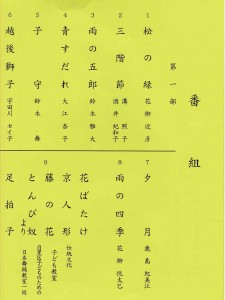 番組
第一部
1 松の緑 花柳近彦
2 三階節 溝照子
酒井紀和子
3 雨の五郎 鈴木雅大
4 青すだれ 大江杏子
5 子守 鈴木舞
6 越後獅子 宇田川セイ子
7 夕月 鹿島紀美江
8 雨の四季 花柳
9 花ばたけ 伝統文化
京人形 子ども教室
藤の花
とんび奴
より
足拍子 日本舞踊教室一同